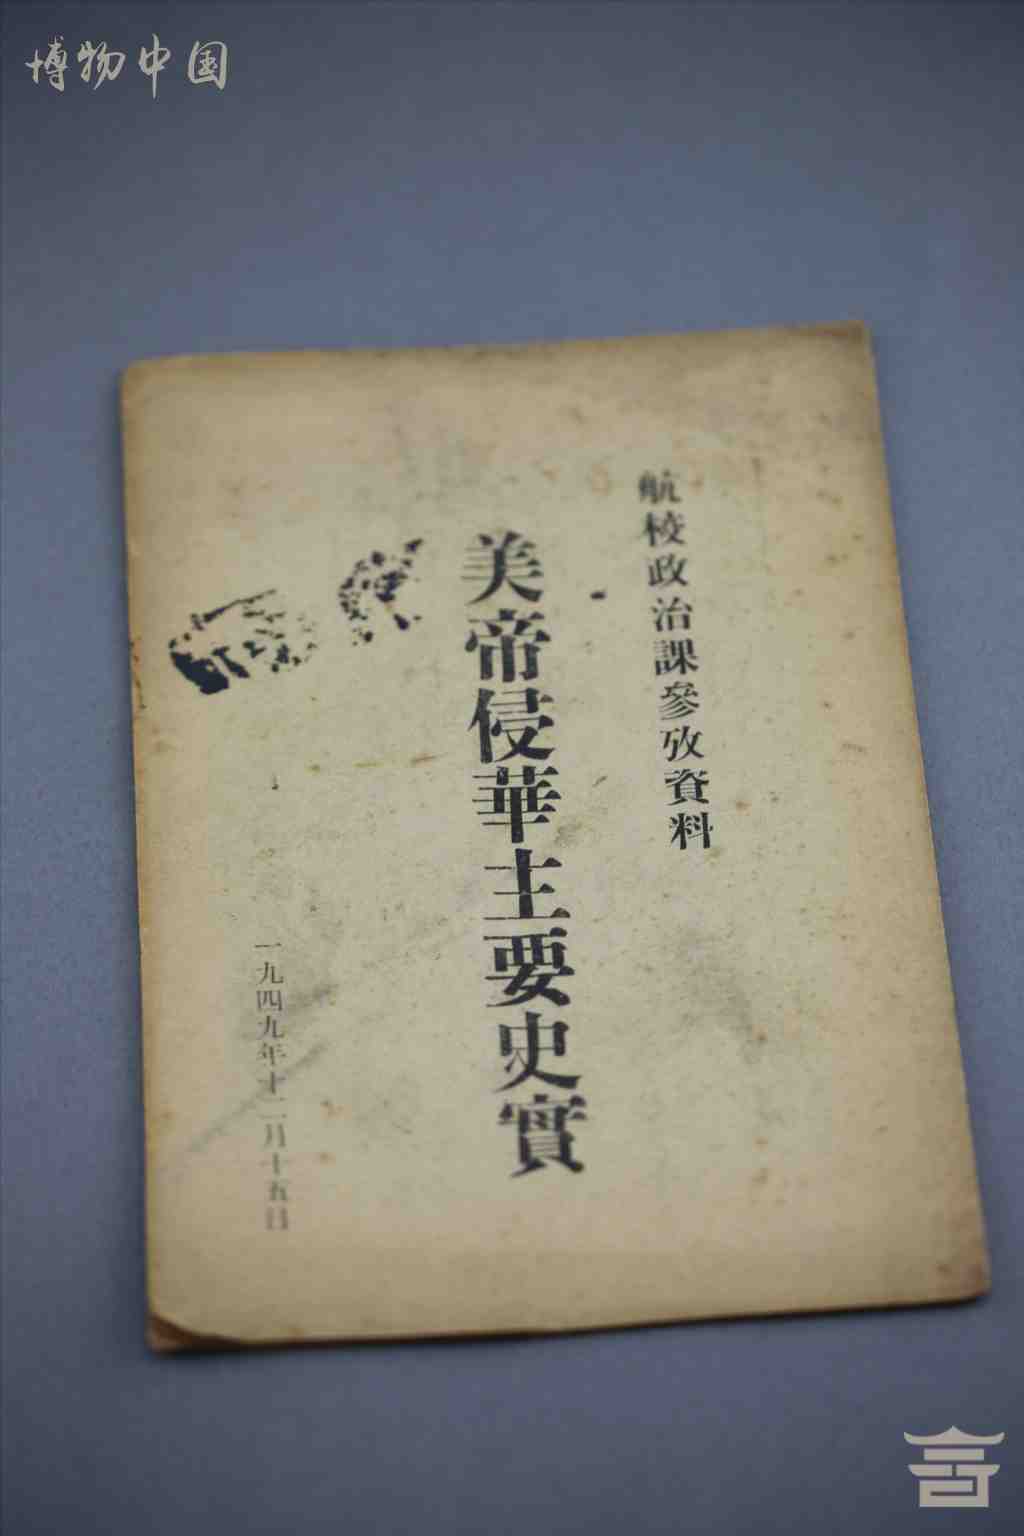 博物中国
航校政治課參攷資料
美帝侵華主要史實
一九四九年十二月十五日